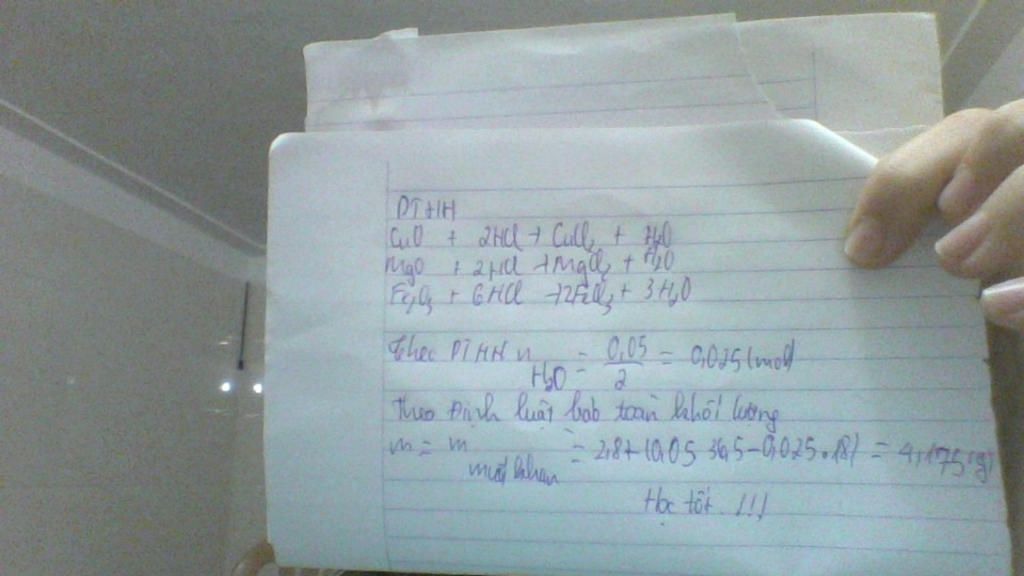 PTHH
CuO + 2HCl → CuCl₂ + H₂O
MgO + 2HCl → MgCl₂ + H₂O
Fe₂O₃ + 6HCl → 2FeCl₃ + 3H₂O
Theo PTHH n H₂O = 0,05/2 = 0,025 (mol)
Theo Định luật bảo toàn khối lượng
m = m muối khan = 2,8 + (0,05 36,5 - 0,025.18) = 4,175 (g)
Học tốt !!!